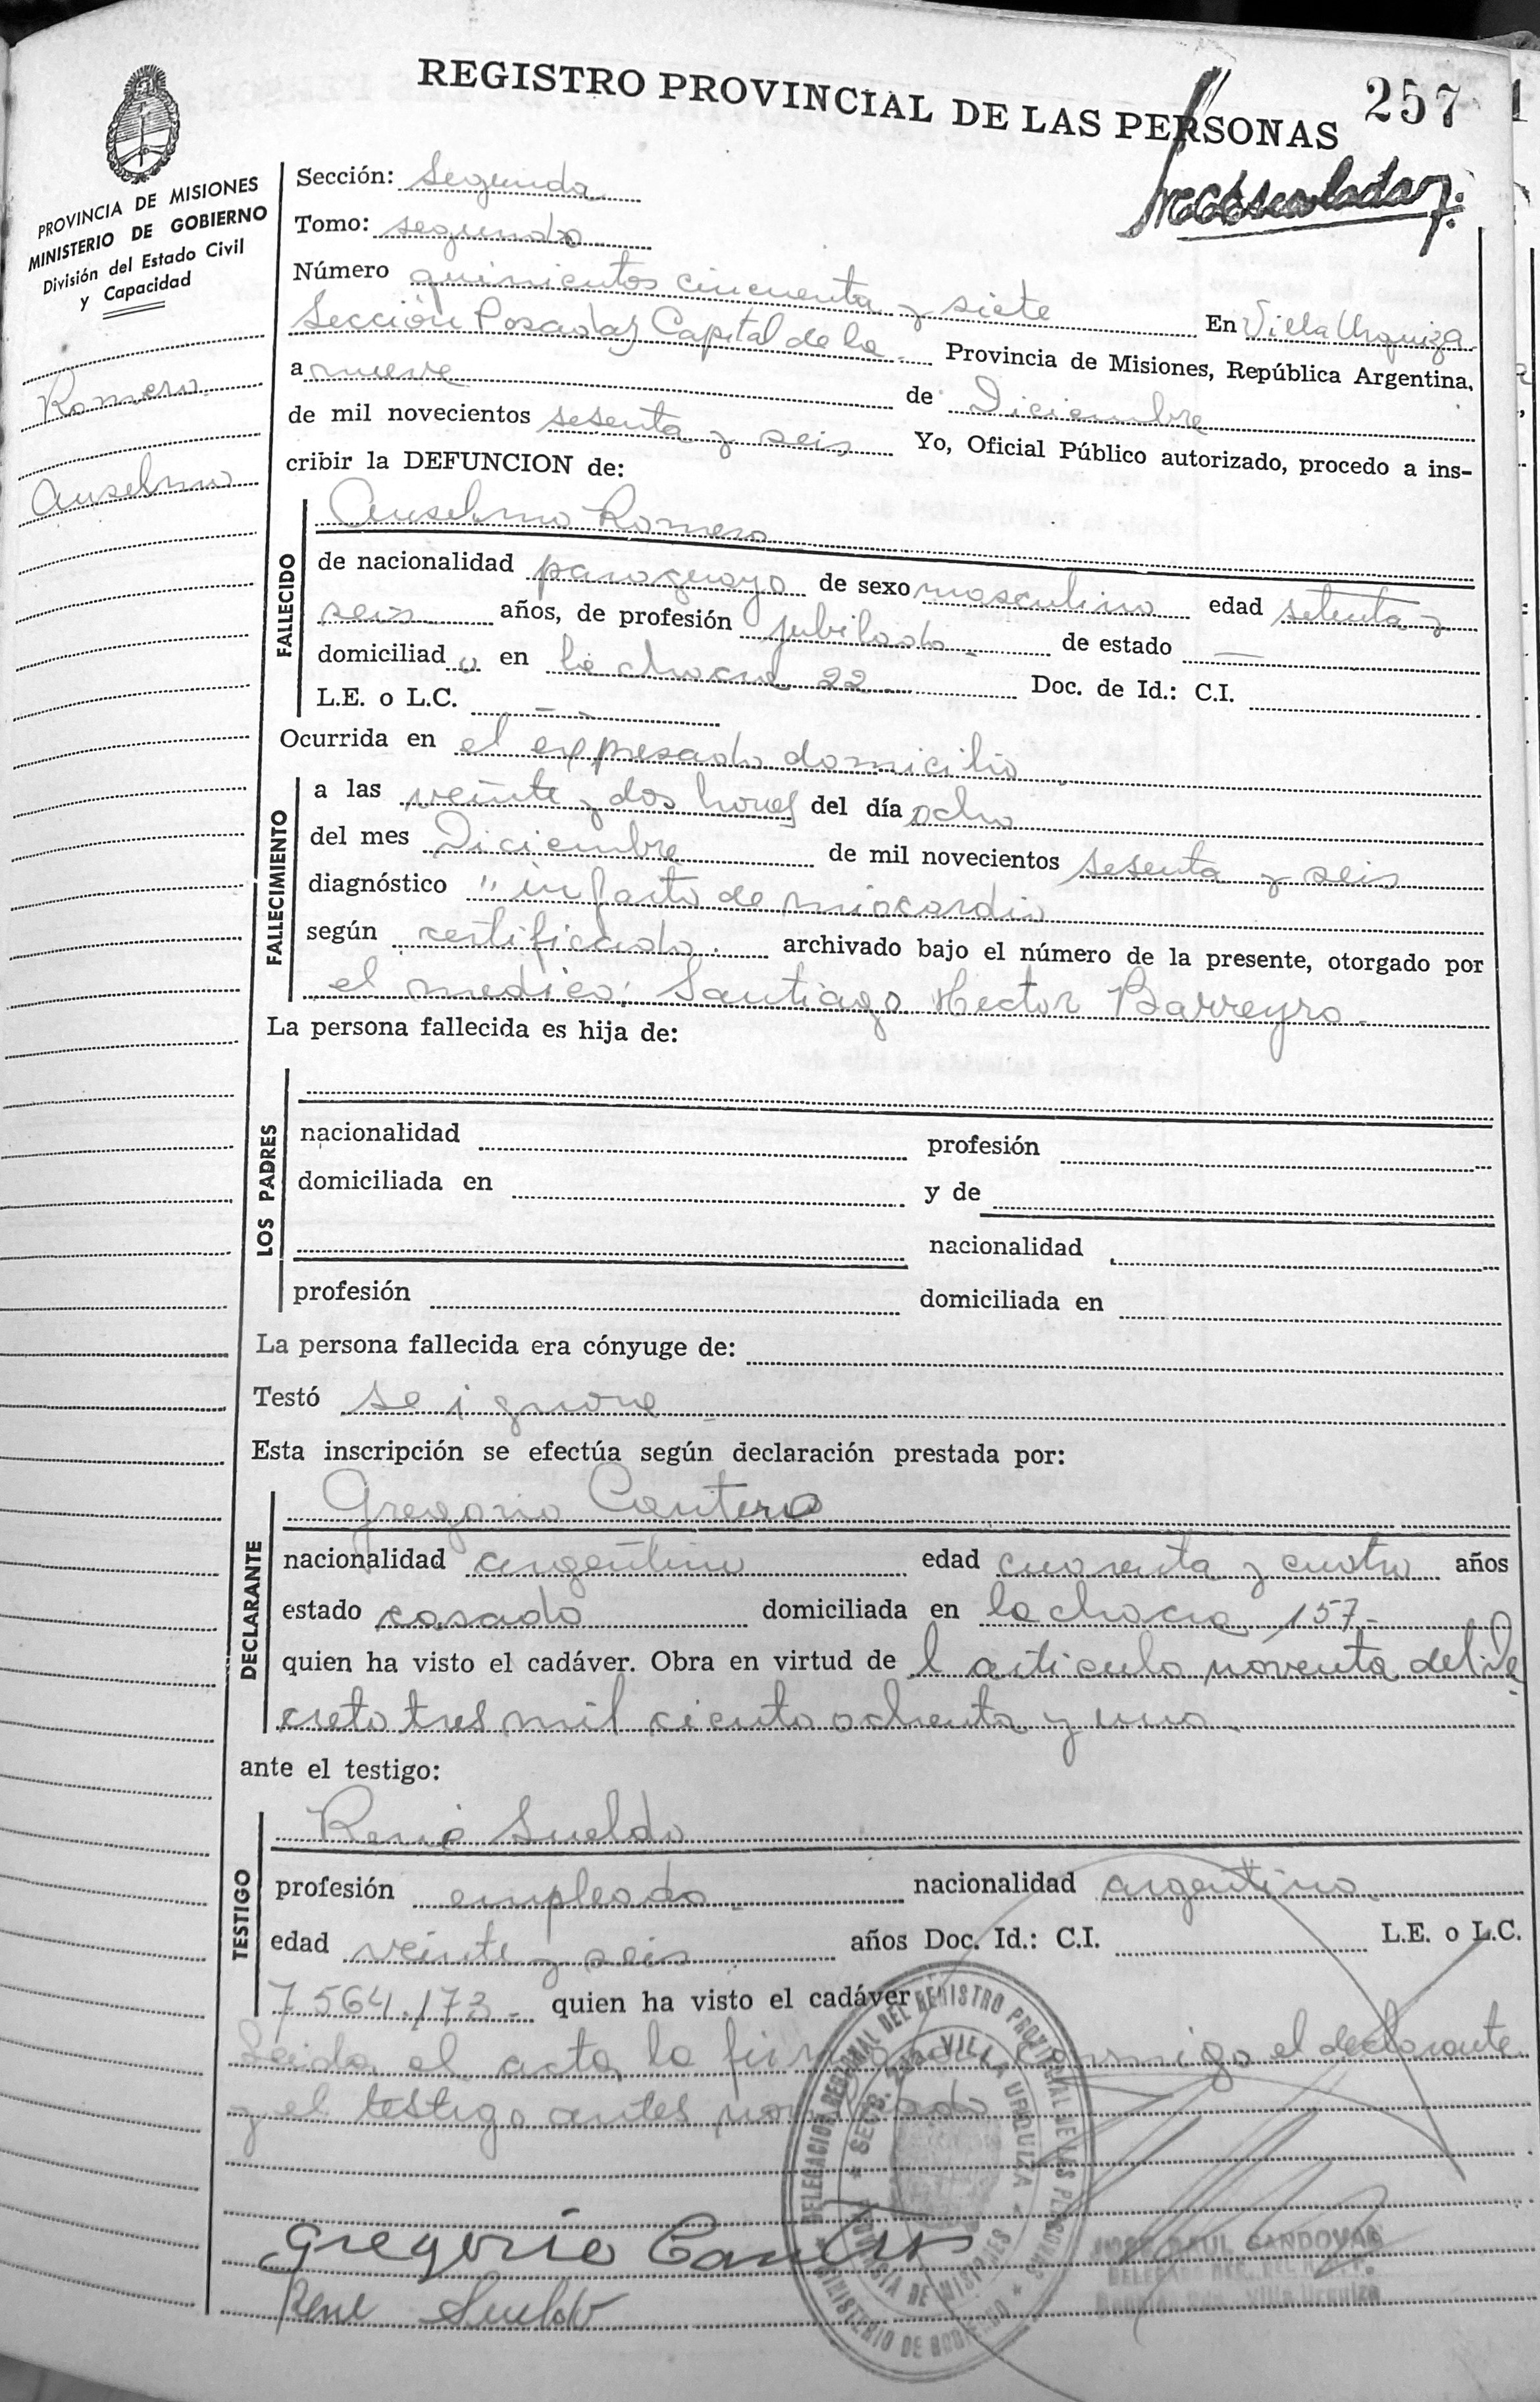 REGISTRO PROVINCIAL DE LAS PERSONAS
257
PROVINCIA DE MISIONES
MINISTERIO DE GOBIERNO
División del Estado Civil
y Capacidad
Romero
Anselmo
Sección: Segunda
Tomo: segundo
Número quinientos cincuenta y siete En Villa Urquiza
Sección Posadas Capital de la Provincia de Misiones, República Argentina,
a nueve de Diciembre
de mil novecientos sesenta y seis Yo, Oficial Público autorizado, procedo a ins-
cribir la DEFUNCION de:
FALLECIDO
Anselmo Romero
de nacionalidad paraguayo de sexo masculino edad setenta y
seis años, de profesión jubilado - de estado —
domiciliad o en la chacra 22 Doc. de Id.: C.I.
L.E. o L.C. — -
Ocurrida en el expresado domicilio
FALLECIMIENTO
a las veinte y dos horas del día ocho
del mes Diciembre de mil novecientos sesenta y seis
diagnóstico " infarto de miocardio
según certificado. archivado bajo el número de la presente, otorgado por
el medico: Santiago Hector Barreyro -
La persona fallecida es hija de:
LOS PADRES
nacionalidad profesión
domiciliada en y de
nacionalidad
profesión domiciliada en
La persona fallecida era cónyuge de:
Testó se ignora
Esta inscripción se efectúa según declaración prestada por:
DECLARANTE
Gregorio Cantero
nacionalidad argentino edad cuarenta y cuatro años
estado casado domiciliada en la chacra 157 -
quien ha visto el cadáver. Obra en virtud de l articulo noventa del de
creto tres mil ciento ochenta y uno
ante el testigo:
TESTIGO
René Sueldo
profesión empleado - nacionalidad argentino
edad veinte y seis años Doc. Id.: C.I. L.E. o L.C.
7564.173 - quien ha visto el cadáver
Leida el acta la firman conmigo el declarante
y el testigo antes nombrado
DELEGACION REGIONAL DEL REGISTRO PROVINCIAL DE LAS PERSONAS
SECC. 2da. VILLA URQUIZA
PROVINCIA DE MISIONES
MINISTERIO DE GOBIERNO
Gregorio Cantero
Rene Sueldo
JOSE RAUL SANDOVAL
Villa Urquiza